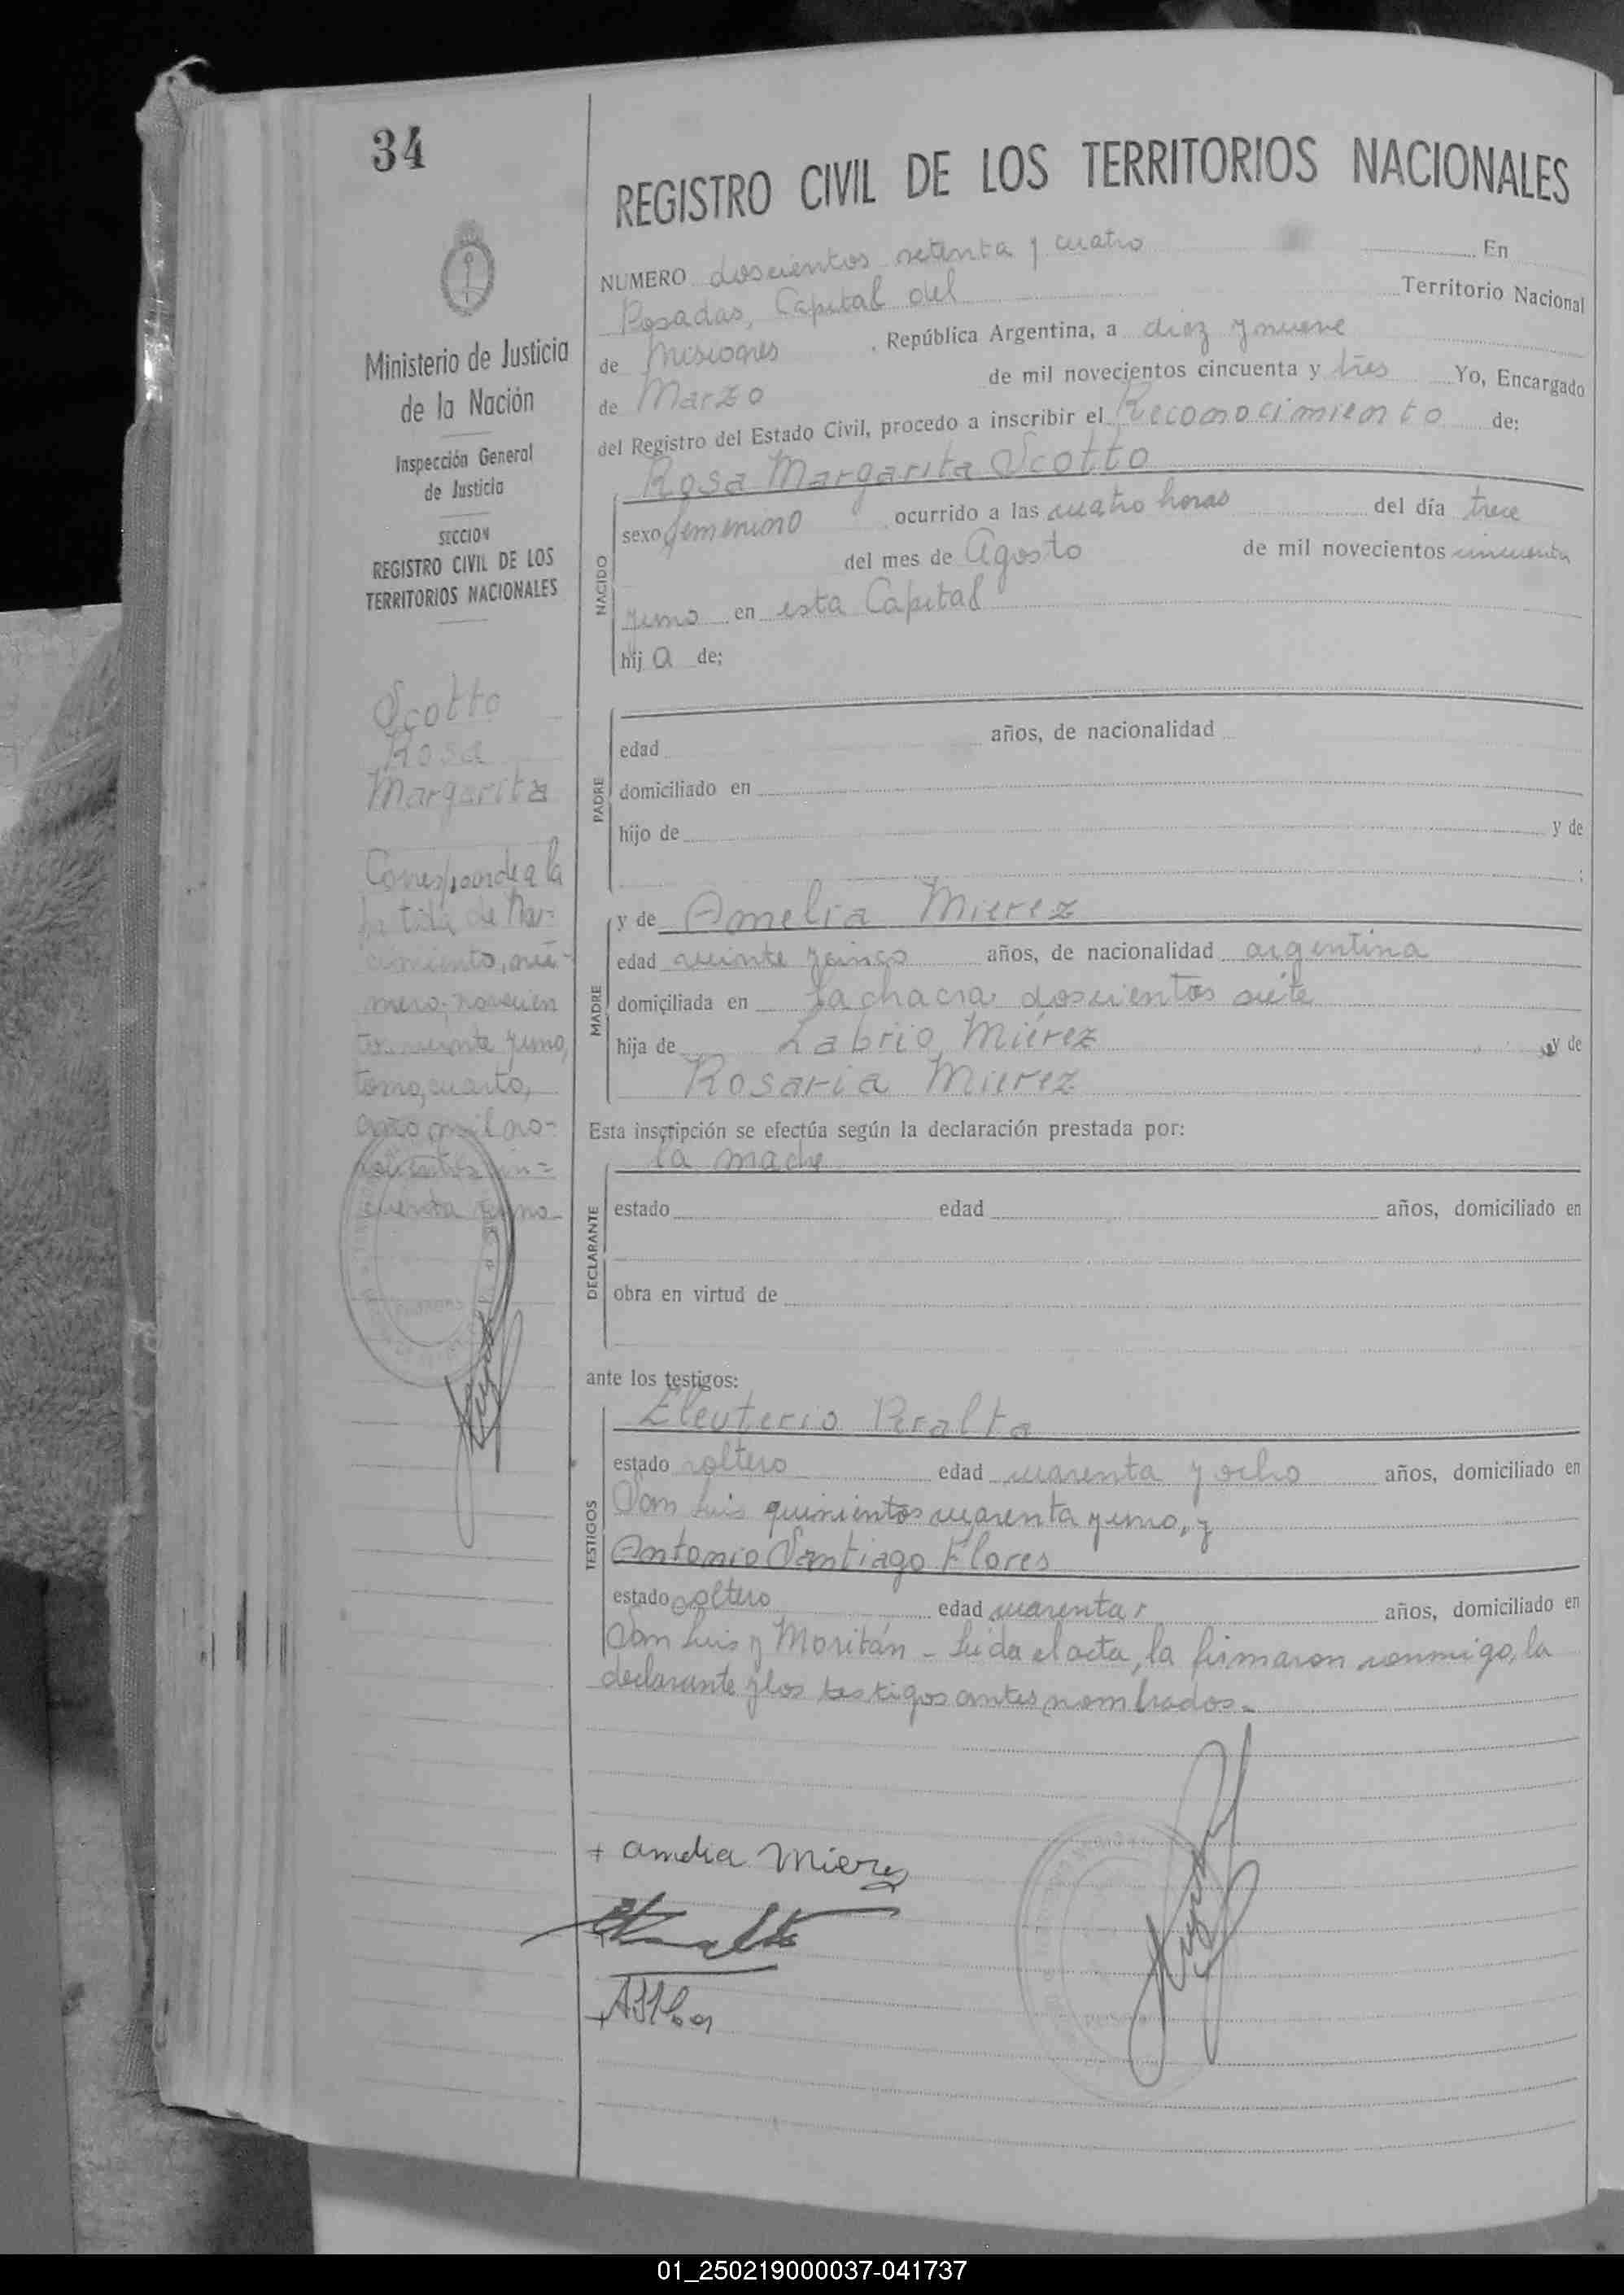 34
REGISTRO CIVIL DE LOS TERRITORIOS NACIONALES
NUMERO doscientos setenta y cuatro En
Posadas, Capital del Territorio Nacional
de Misiones , República Argentina, a diez y nueve
de Marzo de mil novecientos cincuenta y tres Yo, Encargado
del Registro del Estado Civil, procedo a inscribir el Reconocimiento de:
Rosa Margarita Scotto
NACIDO
sexo femenino ocurrido a las cuatro horas del día trece
del mes de Agosto de mil novecientos cincuenta
y uno en esta Capital
hij a de;
PADRE
edad años, de nacionalidad
domiciliado en
hijo de y de
;
MADRE
y de Amelia Mierez
edad veinte y cinco años, de nacionalidad argentina
domiciliada en la chacra doscientos siete
hija de Labrio Miérez y de
Rosaria Mierez
Esta inscripción se efectúa según la declaración prestada por:
la madre
DECLARANTE
estado edad años, domiciliado en
obra en virtud de
ante los testigos:
TESTIGOS
Eleuterio Peralta
estado soltero edad cuarenta y ocho años, domiciliado en
San Luis quinientos cuarenta y uno, y
Antonio Santiago Flores
estado soltero edad cuarenta años, domiciliado en
San Luis y Moritán - Leída el acta, la firmaron conmigo, la
declarante y los testigos antes nombrados.-
+ amelia Mierez
Ministerio de Justicia
de la Nación
Inspección General
de Justicia
SECCION
REGISTRO CIVIL DE LOS
TERRITORIOS NACIONALES
Scotto
Rosa
Margarita
Corresponde a la
partida de Na-
cimiento, nú-
mero novecien
tos veinte y uno,
tomo cuarto,
año mil no-
vecientos cin=
cuenta y uno-
01_250219000037-041737